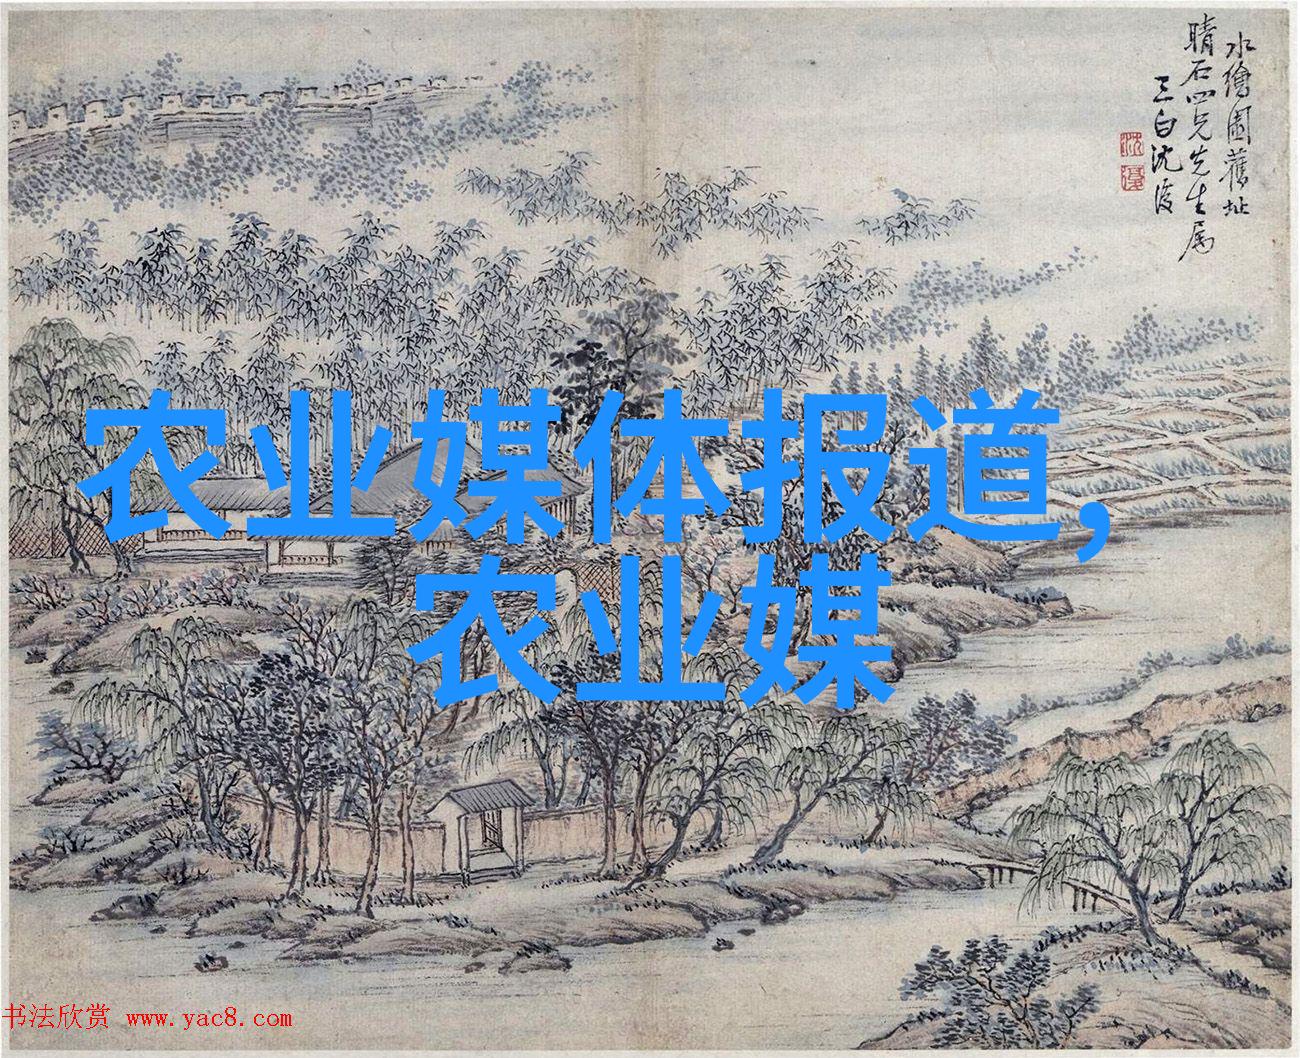 水繪園舊址
晴石四兄先生属
三白沈復
沈
復
农业媒体报道,
农业媒
书法欣赏 www.yac8.com